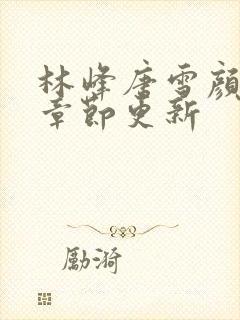 林峰唐雪颜
章節更新
勵漪